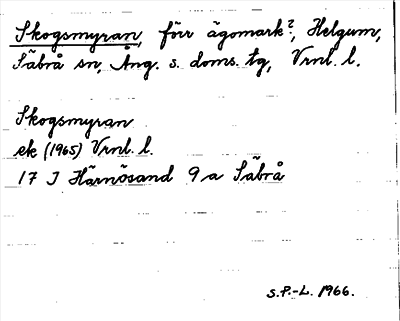 Skogsmyran, förr ägomark?, Helgum,
Säbrå sn, Ång. s. doms. tg, Vrnl. l.
Skogsmyran
ek (1965) Vrnl. l.
17 I Härnösand 9a Säbrå
S.P.-L. 1966.